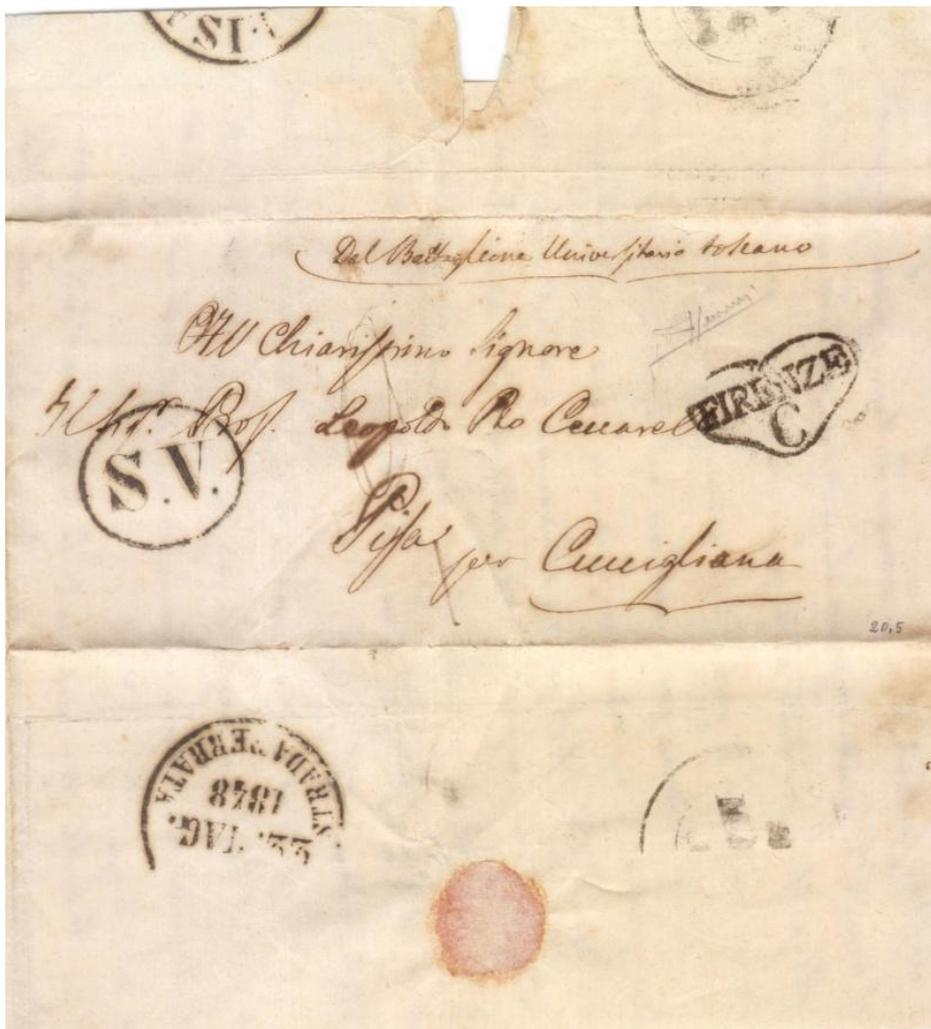 Dal Battaglione Universitario toscano
All Chiarissimo Signore
Prof. Leopoldo Pio
FIRENZE
C
S.V.
Pisa
per Cucigliana
20,5
STRADA FERRATA
1848
22. MAG.